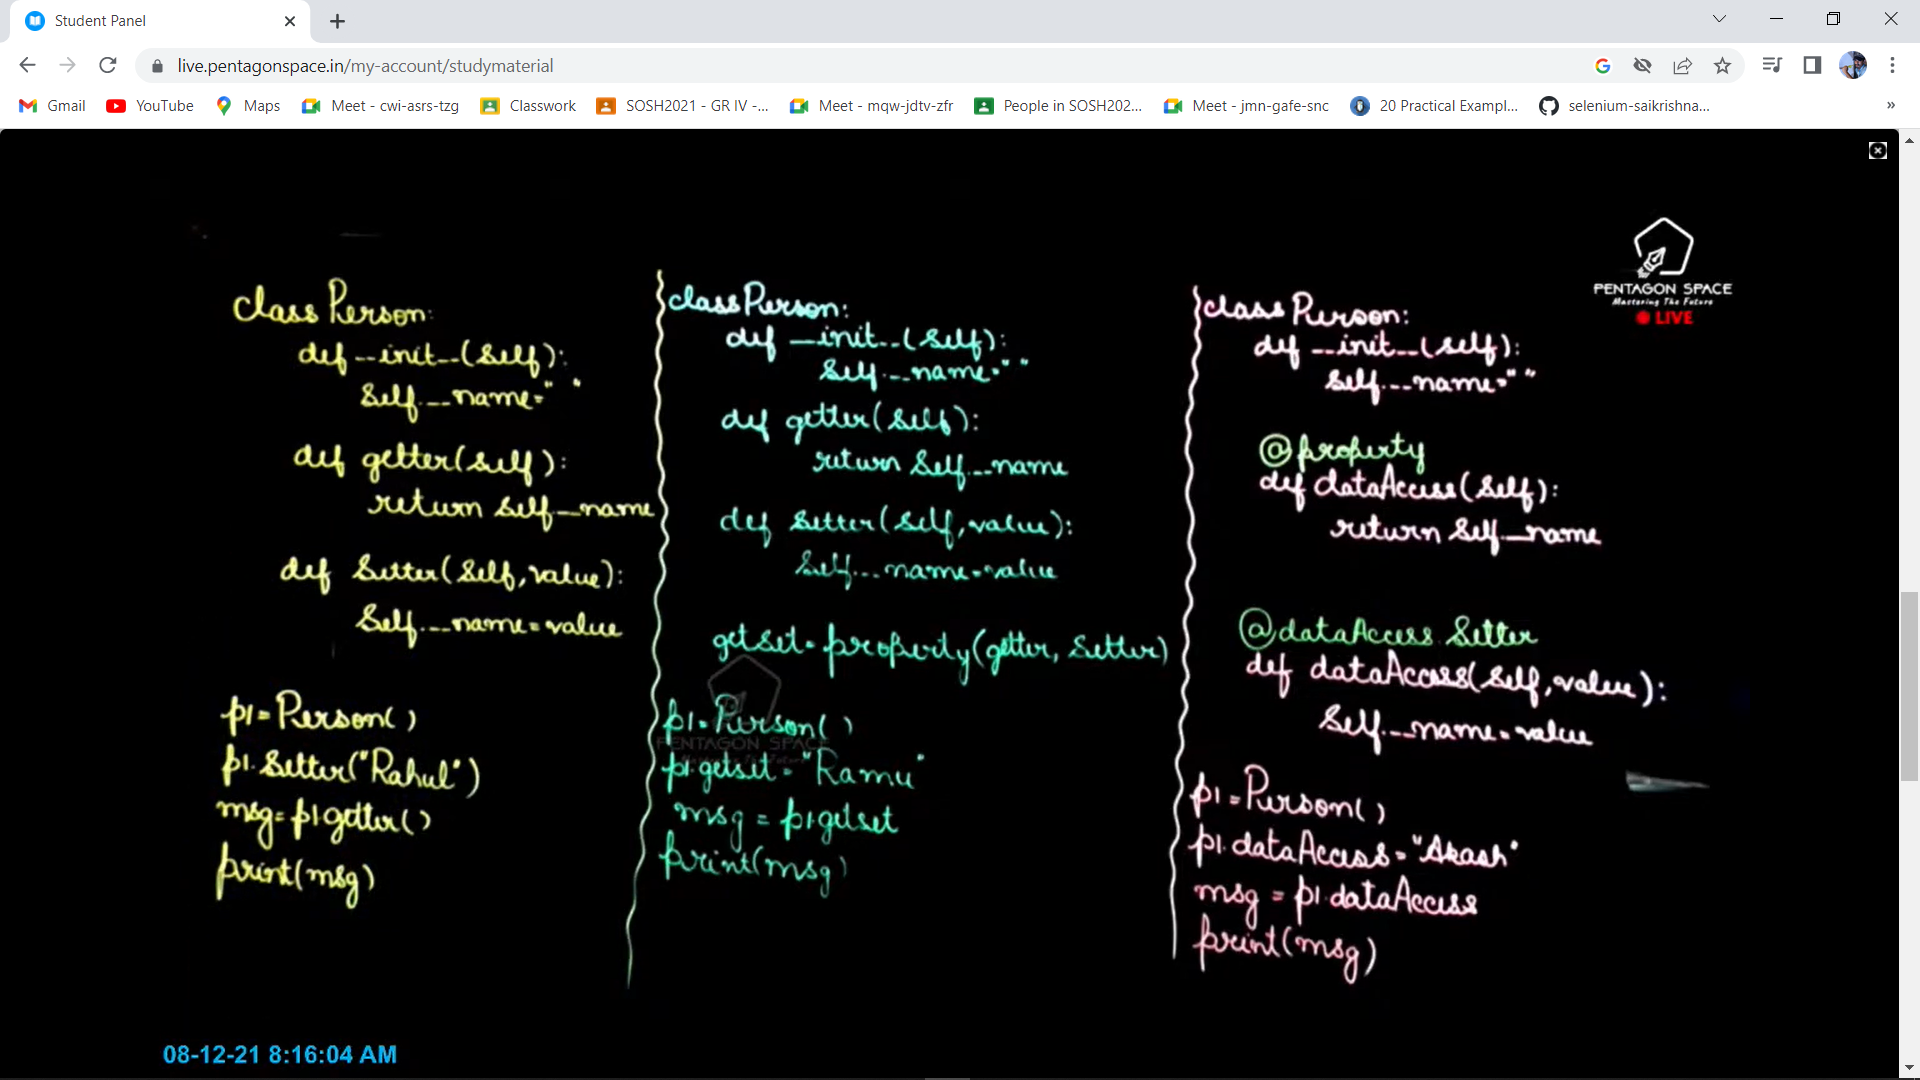 Student Panel
live.pentagonspace.in/my-account/studymaterial
Gmail
YouTube
Maps
Meet - cwi-asrs-tzg
Classwork
SOSH2021 - GR IV -...
Meet - mqw-jdtv-zfr
People in SOSH202...
Meet - jmn-gafe-snc
20 Practical Exampl...
selenium-saikrishna...
»
PENTAGON SPACE
Mastering The Future
LIVE
class Person:
def __init__(self):
self.__name=" "
def getter(self):
return self.__name
def setter(self,value):
self.__name=value
p1=Person()
p1.setter("Rahul")
msg=p1.getter()
print(msg)
class Person:
def __init__(self):
self.__name=" "
def getter(self):
return self.__name
def setter(self,value):
self.__name=value
getset=property(getter, setter)
p1=Person()
p1.getset="Ramu"
msg=p1.getset
print(msg)
PENTAGON SPACE
Mastering The Future
class Person:
def __init__(self):
self.__name=" "
@property
def dataAccess(self):
return self.__name
@dataAccess.setter
def dataAccess(self,value):
self.__name=value
p1=Person()
p1.dataAccess="Akash"
msg=p1.dataAccess
print(msg)
08-12-21 8:16:04 AM